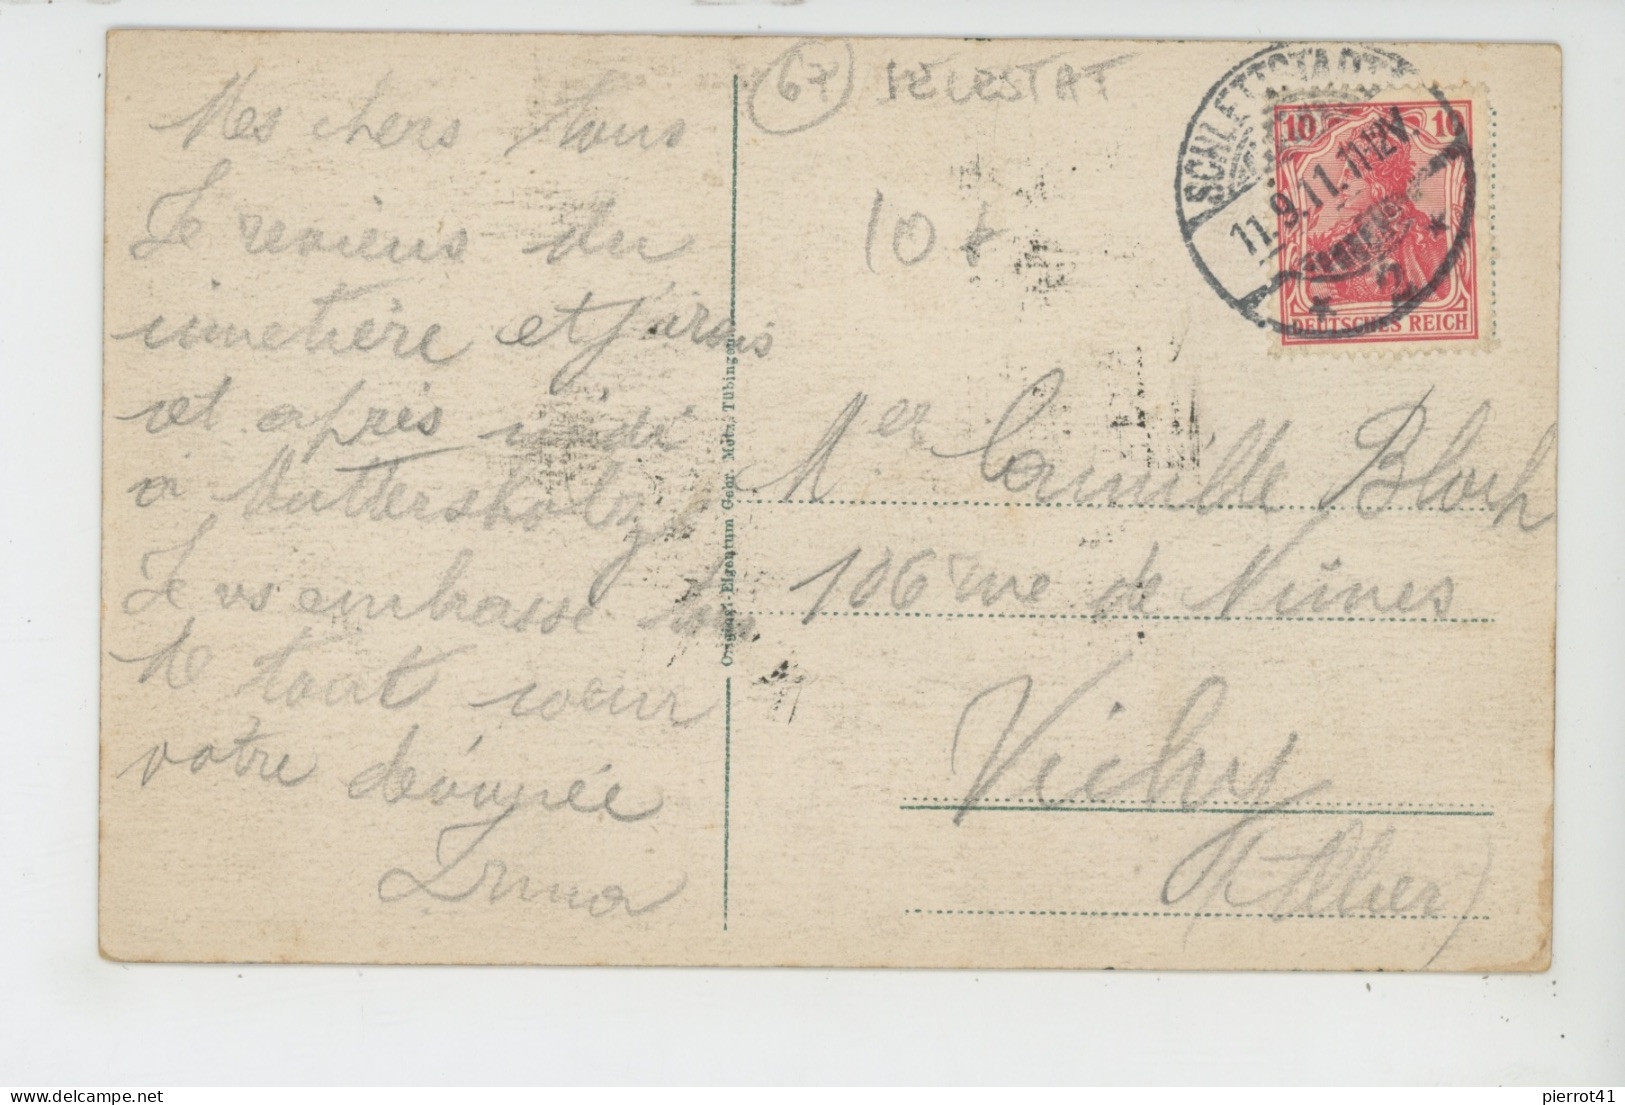 67 SELESTAT
10 +
SCHLETTSTADT
11.9.11.11-12V.
* 2 *
10 10
DEUTSCHES REICH
Mes chers tous
Je reviens du
cimetière et j'irais
cet après midi
à Muttersholtz
Je vs embrasse tous
de tout coeur
votre dévouée
Irma
Original-Eigentum Gebr. Metz, Tübingen
Mer Camille Bloch
106 rue de Nîmes
Vichy
(Allier)
pierrot41